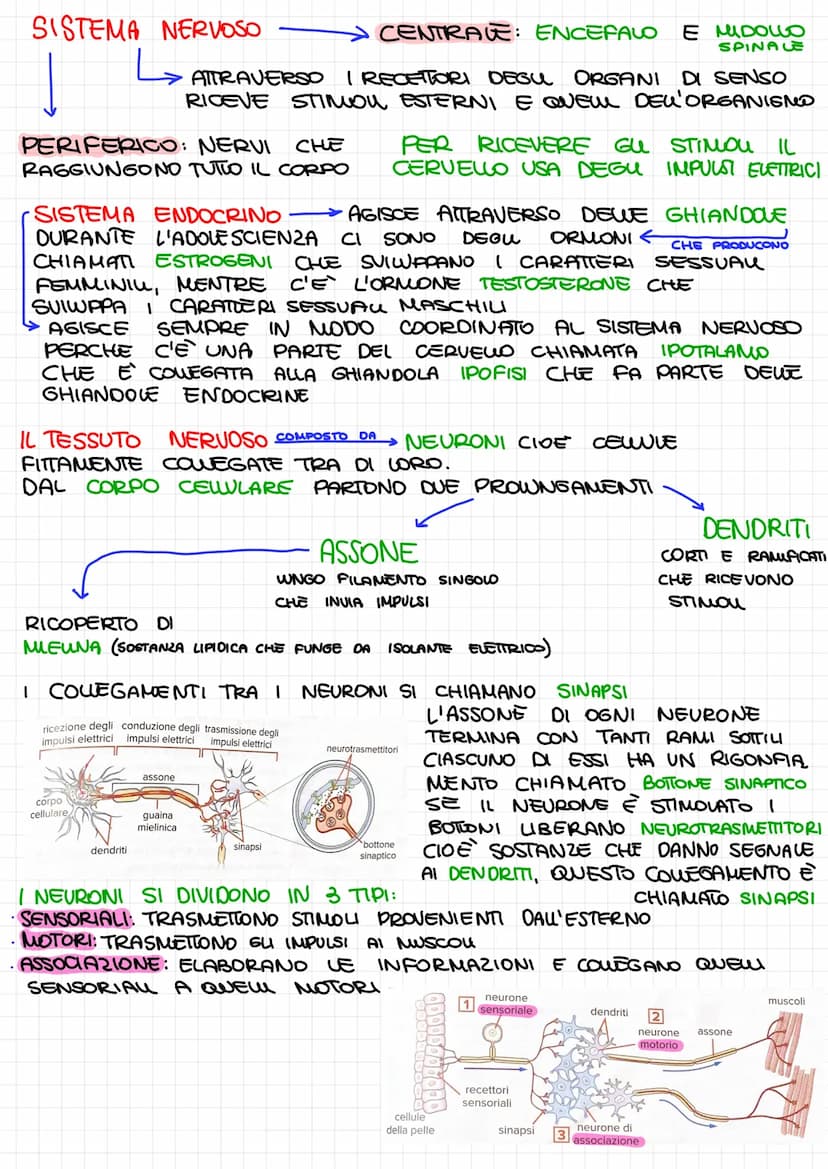 SISTEMA NERVOSO → CENTRALE: ENCEFALO E MIDOLLO SPINALE
ATTRAVERSO I RECETTORI DEGLI ORGANI DI SENSO
RICEVE STIMOLI ESTERNI E QUELLI DELL'ORGANISMO
PERIFERICO: NERVI CHE
RAGGIUNGONO TUTTO IL CORPO
PER RICEVERE GLI STIMOLI IL
CERVELLO USA DEGLI IMPULSI ELETTRICI
SISTEMA ENDOCRINO → AGISCE ATTRAVERSO DELLE GHIANDOLE
CHE PRODUCONO
DURANTE L'ADOLESCIENZA CI SONO DEGLI ORMONI
CHIAMATI ESTROGENI CHE SVILUPPANO I CARATTERI SESSUALI
FEMMINILI, MENTRE C'È L'ORMONE TESTOSTERONE CHE
SVILUPPA I CARATTERI SESSUALI MASCHILI
AGISCE SEMPRE IN MODO COORDINATO AL SISTEMA NERVOSO
PERCHE C'È UNA PARTE DEL CERVELLO CHIAMATA IPOTALAMO
CHE È COLLEGATA ALLA GHIANDOLA IPOFISI CHE FA PARTE DELLE
GHIANDOLE ENDOCRINE
IL TESSUTO NERVOSO COMPOSTO DA → NEURONI CIOÈ CELLULE
FITTAMENTE COLLEGATE TRA DI LORO.
DAL CORPO CELLULARE PARTONO DUE PROLUNGAMENTI
ASSONE
LUNGO FILAMENTO SINGOLO
CHE INVIA IMPULSI
DENDRITI
CORTI E RAMIFICATI
CHE RICEVONO
STIMOLI
RICOPERTO DI
MIELINA (SOSTANZA LIPIDICA CHE FUNGE DA ISOLANTE ELETTRICO)
I COLLEGAMENTI TRA I NEURONI SI CHIAMANO SINAPSI
L'ASSONE DI OGNI NEURONE
TERMINA CON TANTI RAMI SOTTILI
CIASCUNO DI ESSI HA UN RIGONFIA
MENTO CHIAMATO BOTTONE SINAPTICO
SE IL NEURONE È STIMOLATO I
BOTTONI LIBERANO NEUROTRASMETTITORI
CIOÈ SOSTANZE CHE DANNO SEGNALE
AI DENDRITI, QUESTO COLLEGAMENTO È
CHIAMATO SINAPSI
ricezione degli impulsi elettrici
conduzione degli impulsi elettrici
trasmissione degli impulsi elettrici
neurotrasmettitori
assone
corpo
cellulare
guaina
mielinica
dendriti
sinapsi
bottone
sinaptico
I NEURONI SI DIVIDONO IN 3 TIPI:
· SENSORIALI: TRASMETTONO STIMOLI PROVENIENTI DALL'ESTERNO
· MOTORI: TRASMETTONO GLI IMPULSI AI MUSCOLI
· ASSOCIAZIONE: ELABORANO LE INFORMAZIONI E COLLEGANO QUELLI
SENSORIALI A QUELLI MOTORI
1 neurone
sensoriale
dendriti
2
neurone
motorio
assone
muscoli
recettori
sensoriali
cellule
della pelle
sinapsi
3 neurone di
associazione